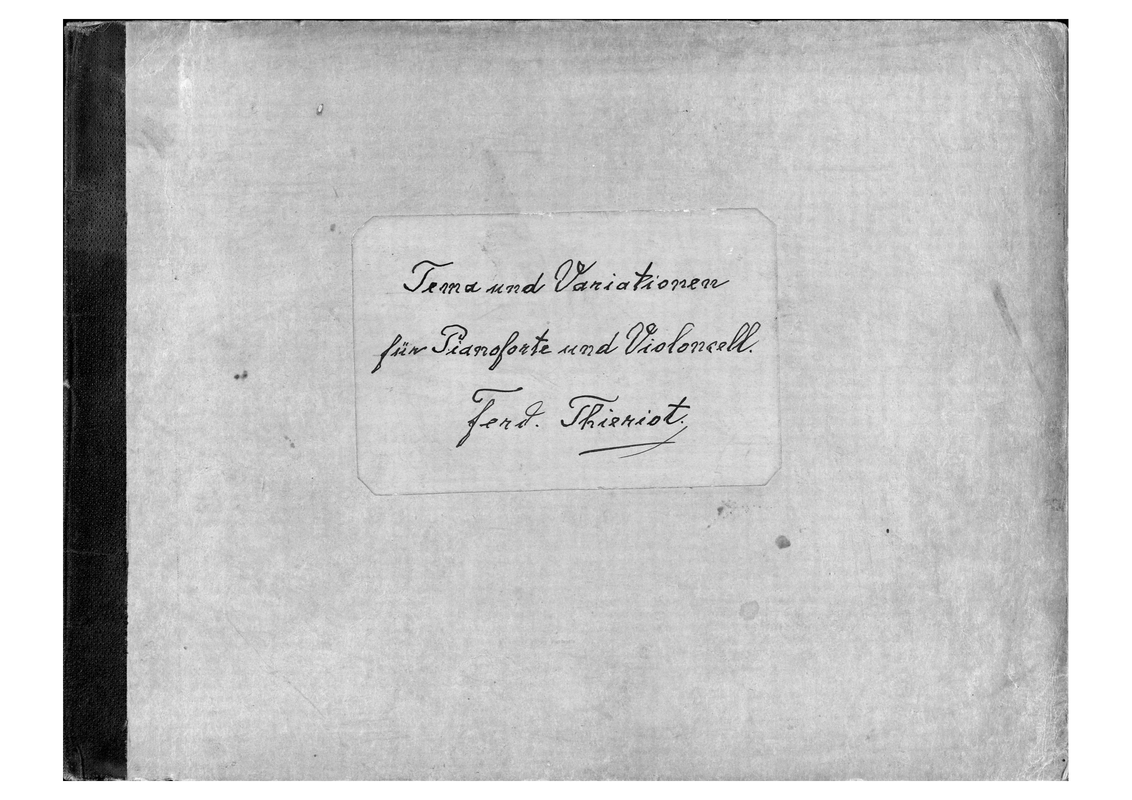 Tema und Variationen
für Pianoforte und Violoncell.
Ferd. Thieriot.